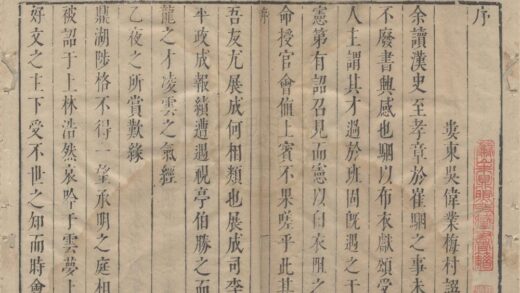 序
婁東吳偉業梅村譔
余讀漢史至孝章於崔駰之事未
不廢書興感也駰以布衣獻頌
人主謂其才過於班固旣遇之于
憲第有詔召見而憲以白衣阻之
命授官會値上賓不果嗟乎此其
吾友尤展成何相類也展成司李
平政成報績遭遇視亭伯勝之而
龍之才凌雲之氣經
乙夜之所賞歎緣
鼎湖陟格不得一望承明之庭相
被詔于上林浩然哀吟于雲夢上
好文之主下受不世之知而時會